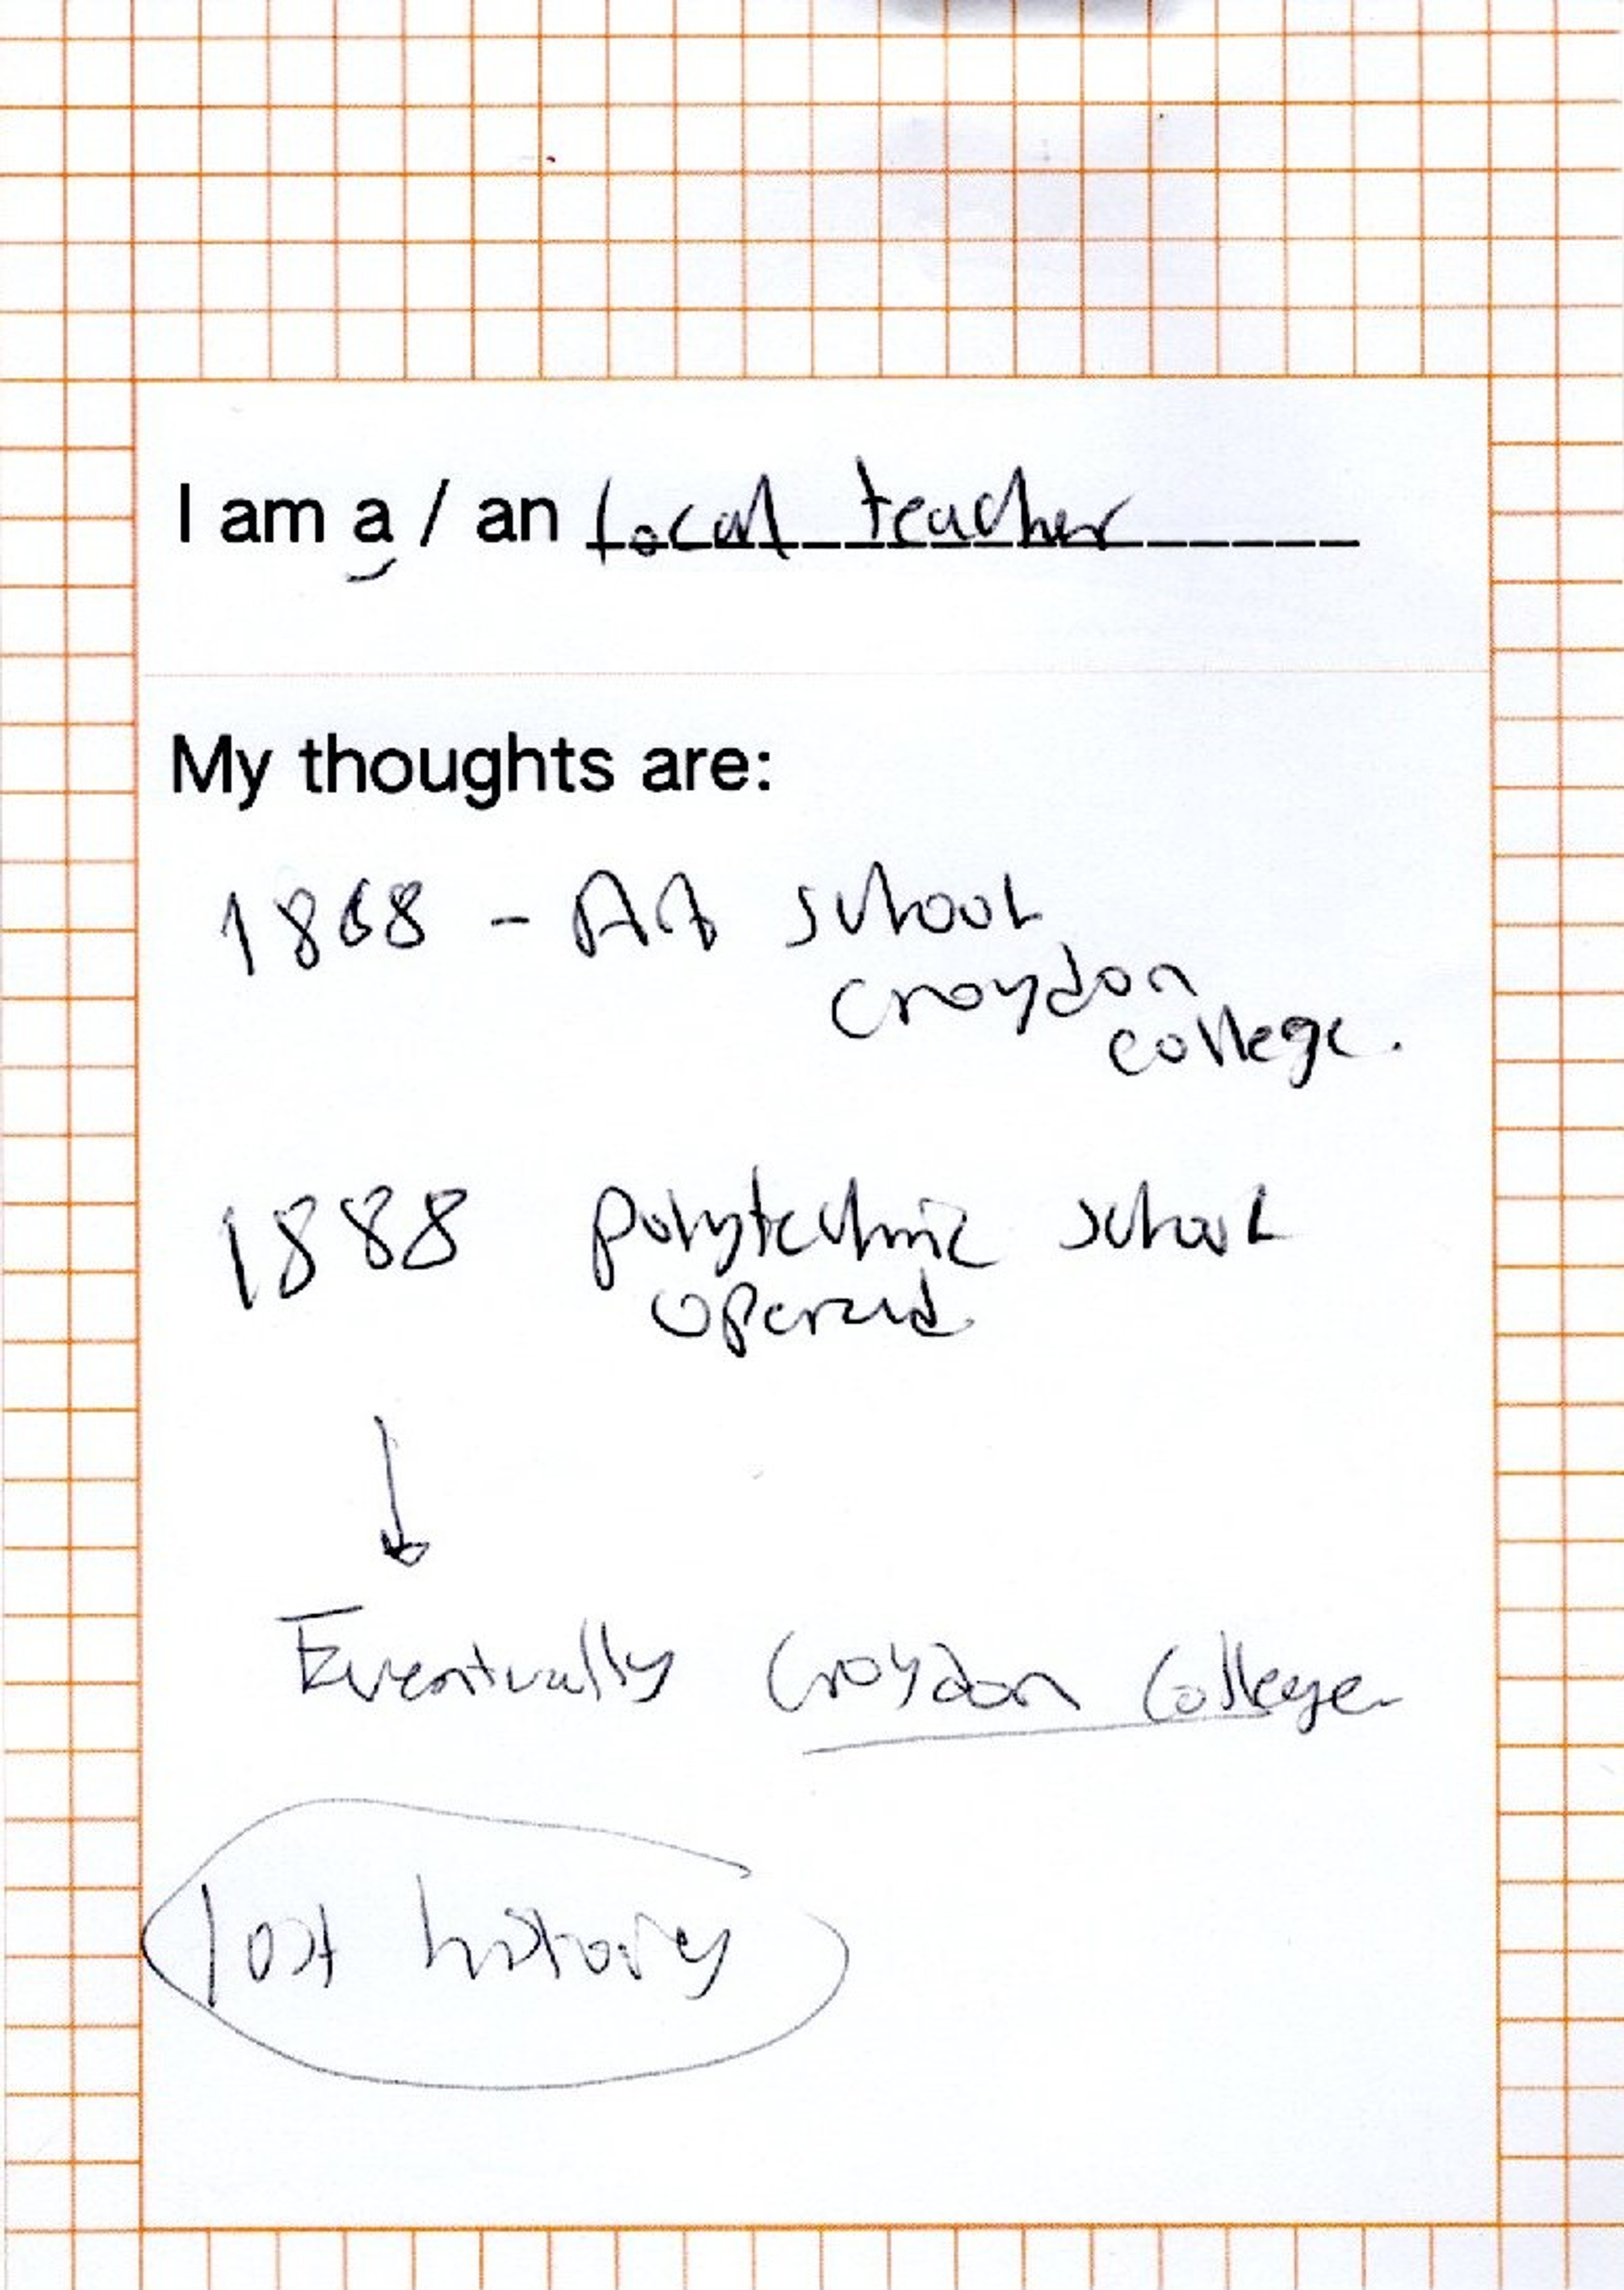 I am a / an local teacher
My thoughts are:
1868 - Art school
croydon
college.
1888 polytechnic school
opened
Eventually Croydon College
lost history